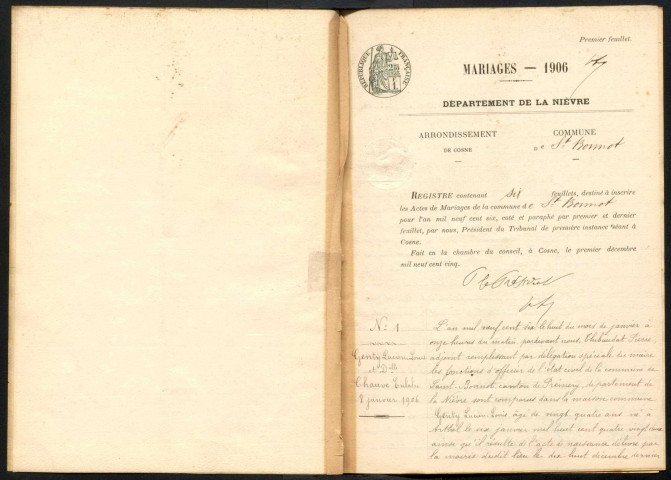 Premier feuillet.
RÉPUBLIQUE FRANÇAISE
MARIAGES — 1906
DÉPARTEMENT DE LA NIÈVRE
ARRONDISSEMENT
DE COSNE
COMMUNE
de St Bonnot
REGISTRE contenant six feuillets, destiné à inscrire
les Actes de Mariages de la commune de St Bonnot
pour l'an mil neuf cent six, coté et paraphé par premier et dernier
feuillet, par nous, Président du Tribunal de première instance séant à
Cosne.
Fait en la chambre du conseil, à Cosne, le premier décembre
mil neuf cent cinq.
No 1
Lucien Louis
et Dlle
Chauve
8 janvier 1906
L'an mil neuf cent six le huit du mois de janvier à
onze heures du matin pardevant nous, Thibaudat Pierre,
adjoint remplissant par délégation spéciale du maire
les fonctions d'officier de l'état civil de la commune de
Saint-Bonnot, canton de Prémery, département de
la Nièvre, sont comparus dans la maison commune
Lucien Louis âgé de vingt quatre ans né à
Arthel le six janvier mil huit cent quatre vingt deux
ainsi qu'il résulte de l'acte de naissance délivré par
la mairie dudit lieu le dix huit décembre dernier